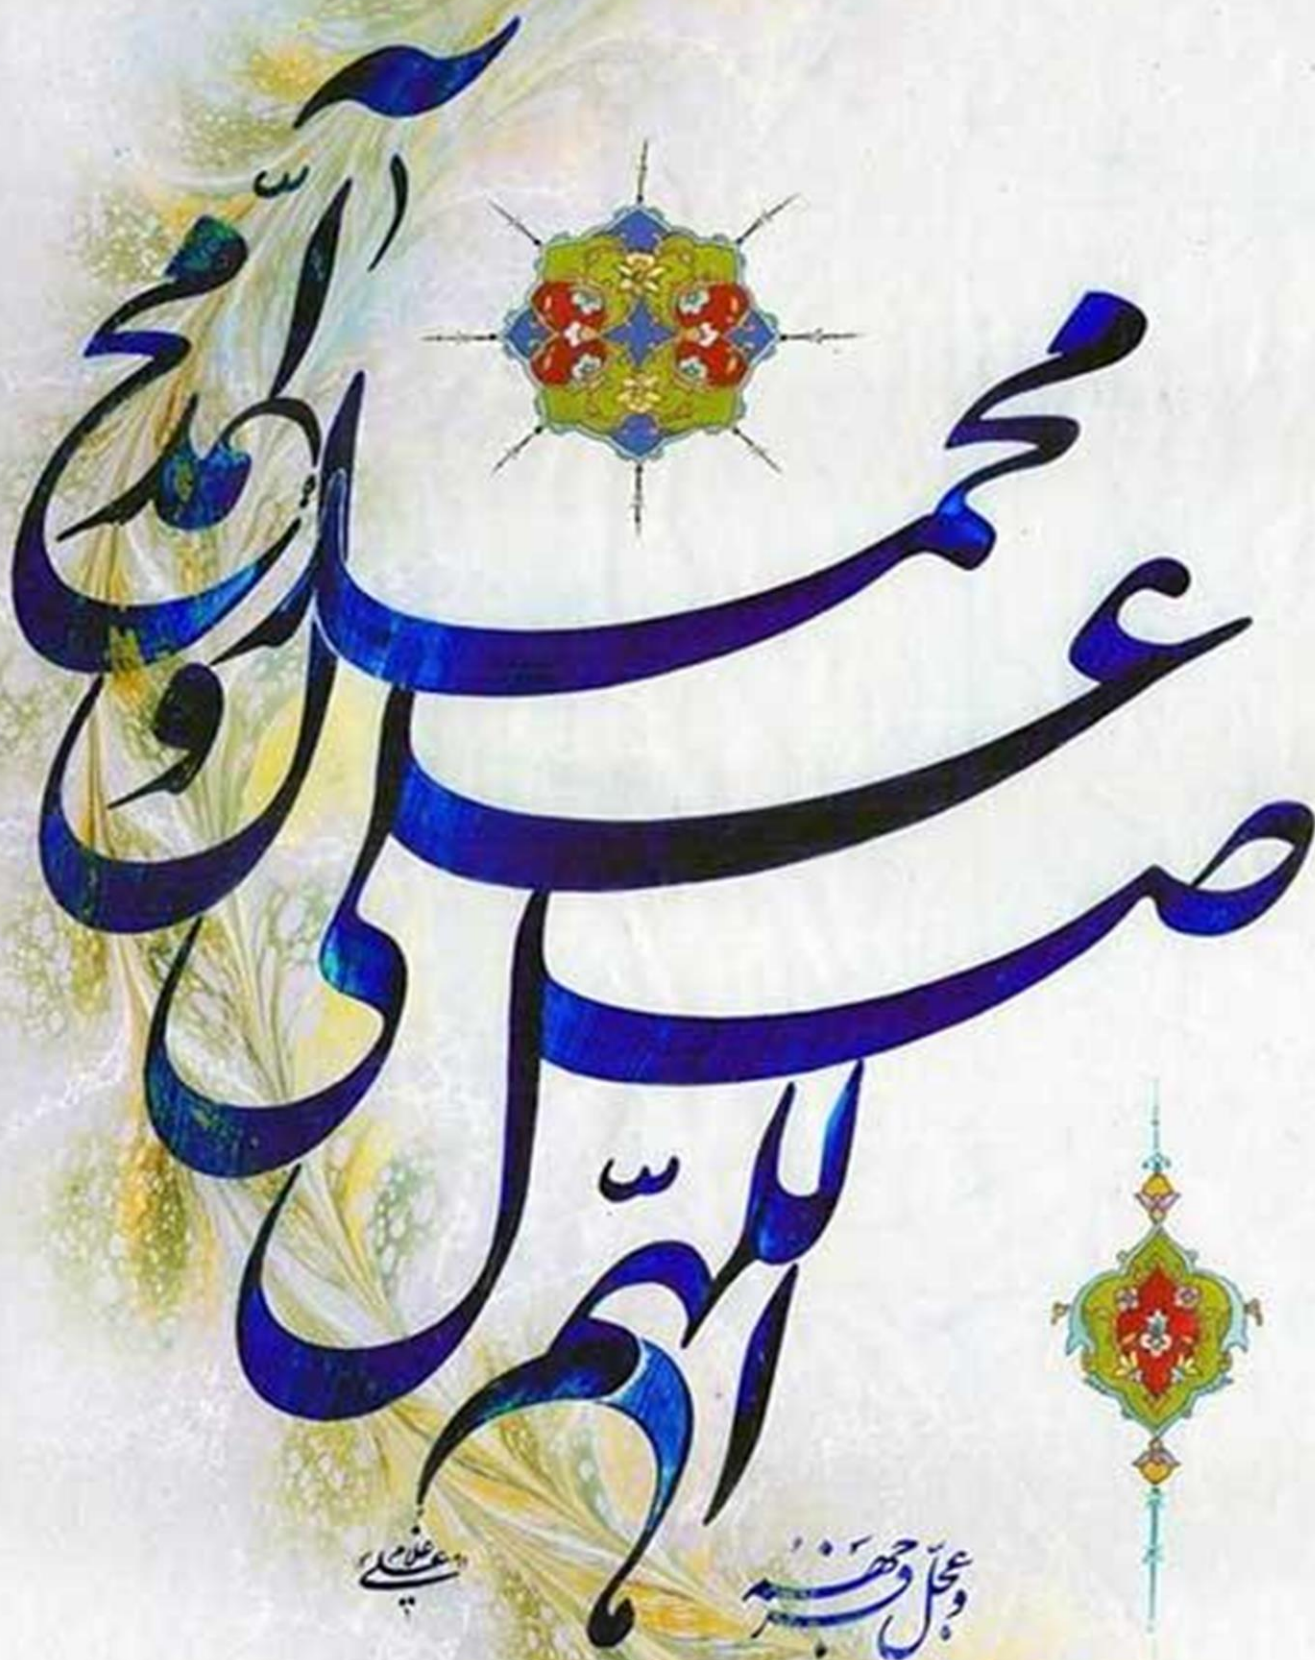 اللهم صل
على
محمد
و آل محمد
و عجل فرجهم
غلامعلی